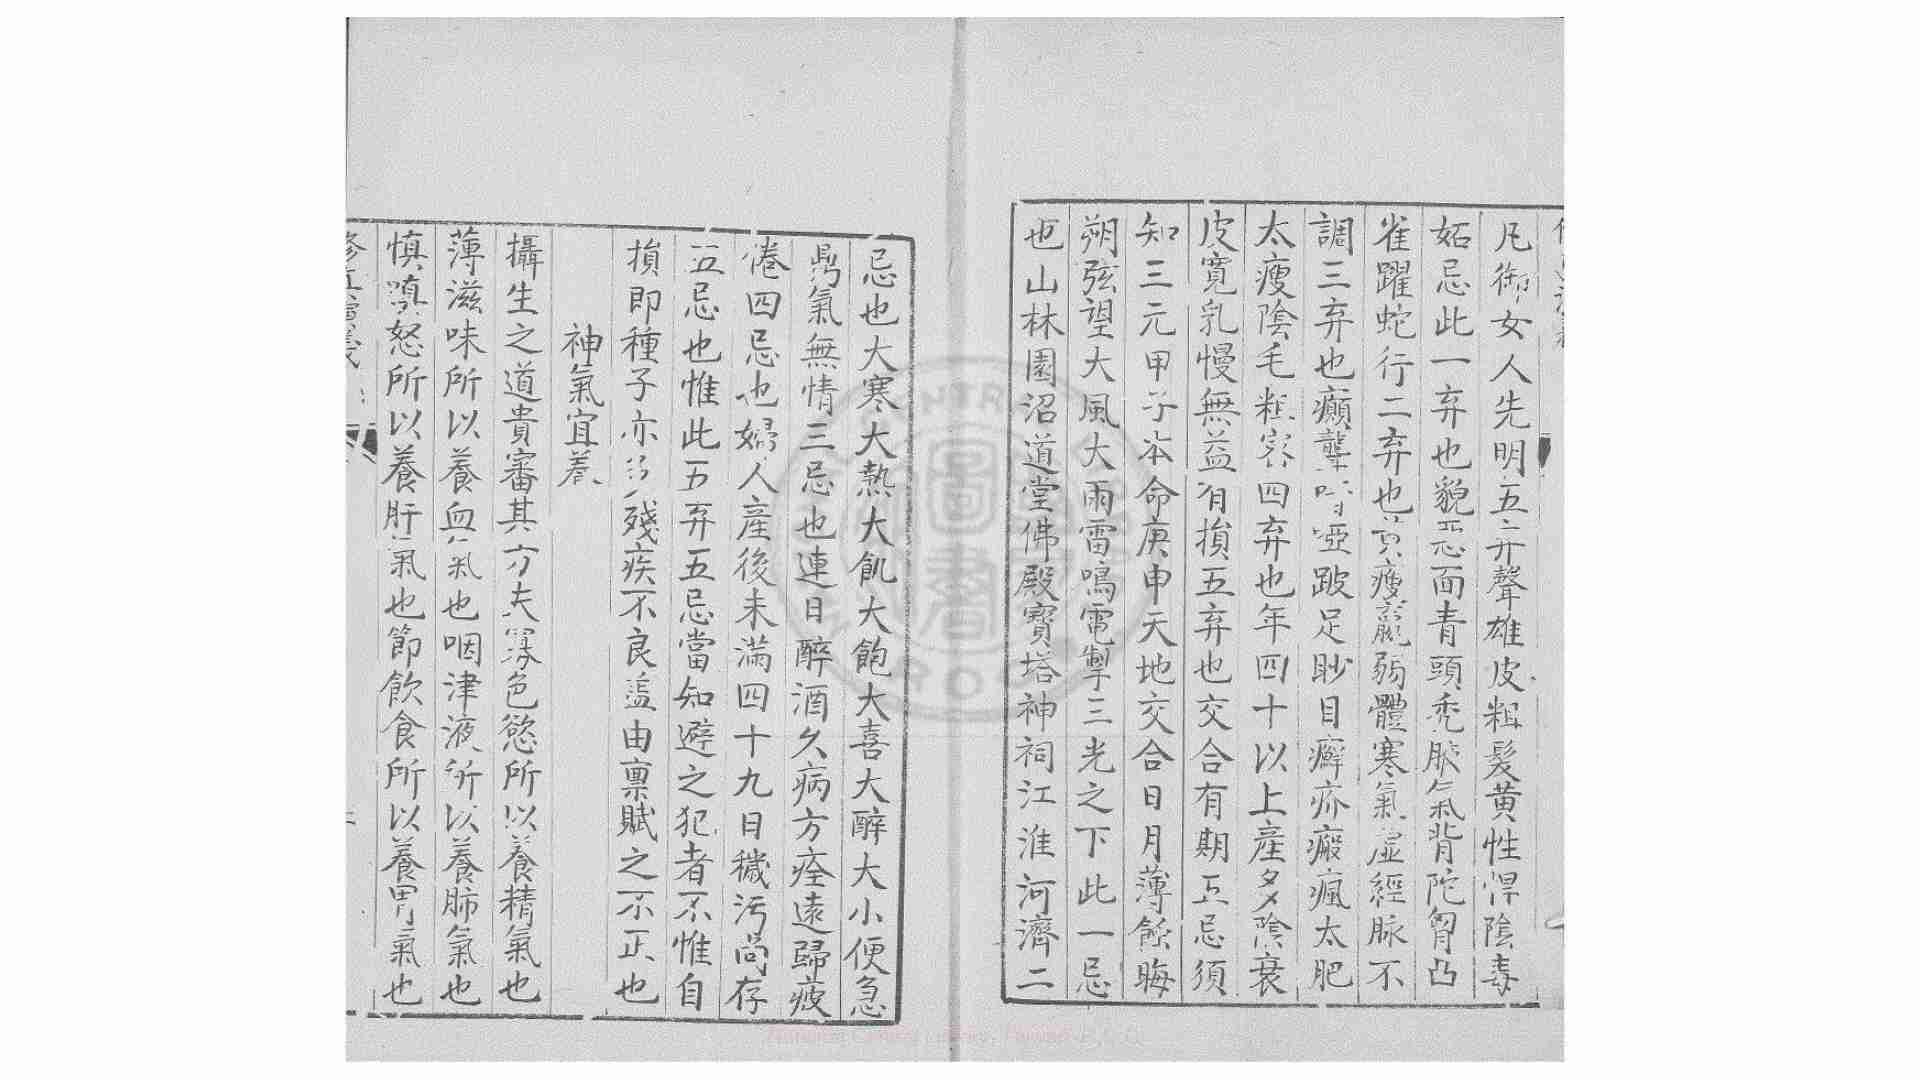 凡御女人先明五弃聲雄皮粗髮黄性悍陰毒
妬忌此一弃也貌惡面青頭禿腋氣背陀胷凸
雀躍蛇行二弃也黄瘦羸弱體寒氣虛經脉不
調三弃也癲聾啞跛足眇目癬疥瘢瘋太肥
太瘦陰毛粗密四弃也年四十以上產多陰衰
皮寬乳慢無益有損五弃也交合有期五忌須
知三元甲子本命庚申天地交合日月薄蝕晦
朔弦望大風大雨雷鳴電掣三光之下此一忌
也山林園沼道堂佛殿寶塔神祠江淮河濟二
忌也大寒大熱大飢大飽大喜大醉大小便急
氣無情三忌也連日醉酒久病方痊遠歸疲
倦四忌也婦人產後未滿四十九日穢污尚存
五忌也惟此五弃五忌當知避之犯者不惟自
損即種子亦多殘疾不良盖由禀賦之不正也
神氣宜養
攝生之道貴審其方夫寡色慾所以養精氣也
薄滋味所以養血氣也咽津液所以養肺氣也
慎嗔怒所以養肝氣也節飲食所以養胃氣也